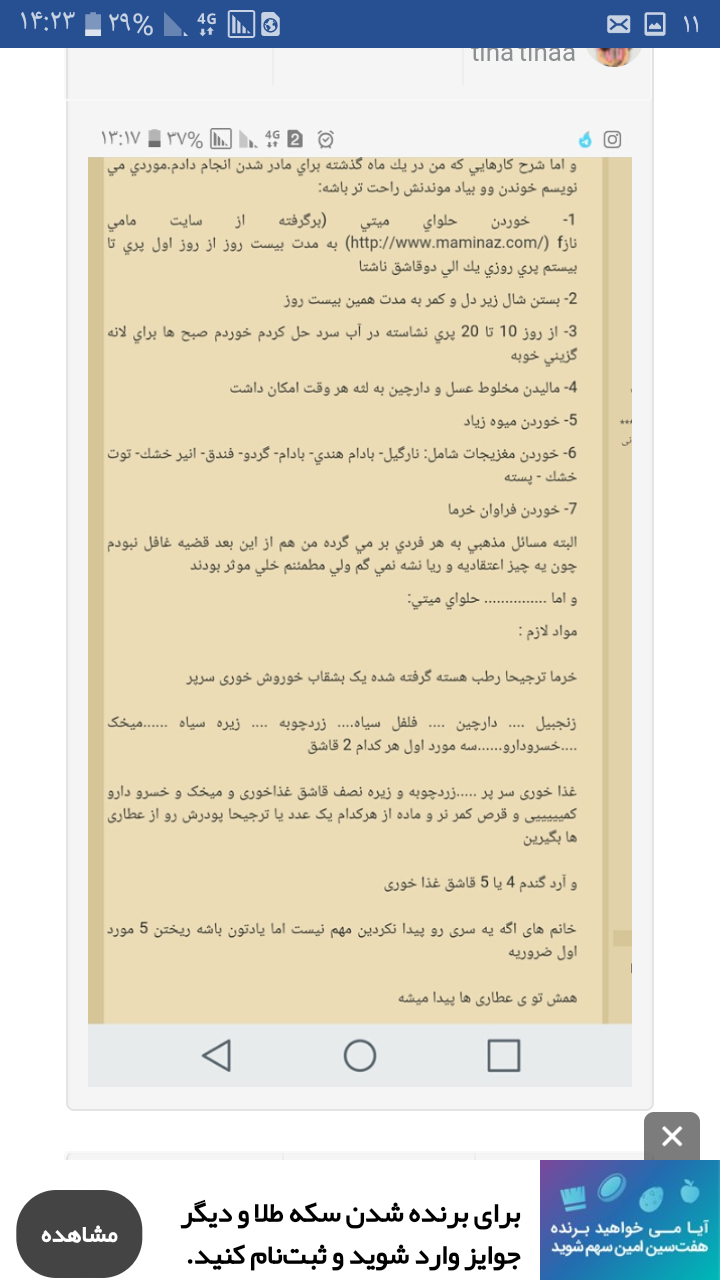 ۱۴:۲۳ ۲۹% 4G ۱۱
tina tinaa
۱۳:۱۷ ۳۷% 4G 2
و اما شرح كارهايي كه من در يك ماه گذشته براي مادر شدن انجام دادم.موردي مي
نويسم خوندن وو بياد موندنش راحت تر باشه:
1- خوردن حلواي ميتي (برگرفته از سايت مامي
نازf (http://www.maminaz.com/) به مدت بيست روز از روز اول پري تا
بيستم پري روزي يك الي دوقاشق ناشتا
2- بستن شال زير دل و كمر به مدت همين بيست روز
3- از روز 10 تا 20 پري نشاسته در آب سرد حل كردم خوردم صبح ها براي لانه
گزيني خوبه
4- ماليدن مخلوط عسل و دارچين به لثه هر وقت امكان داشت
5- خوردن ميوه زياد
***
6- خوردن مغزيجات شامل: نارگيل- بادام هندي- بادام- گردو- فندق- انير خشك- توت
خشك - پسته
7- خوردن فراوان خرما
البته مسائل مذهبي به هر فردي بر مي گرده من هم از اين بعد قضيه غافل نبودم
چون يه چيز اعتقاديه و ريا نشه نمي گم ولي مطمئنم خلي موثر بودند
و اما ............... حلواي ميتي:
مواد لازم :
خرما ترجیحا رطب هسته گرفته شده یک بشقاب خوروش خوری سرپر
زنجبیل .... دارچین .... فلفل سیاه.... زردچوبه .... زیره سیاه ......میخک
....خسرودارو......سه مورد اول هر کدام 2 قاشق
غذا خوری سر پر .....زردچوبه و زیره نصف قاشق غذاخوری و میخک و خسرو دارو
کمیییییی و قرص کمر نر و ماده از هرکدام یک عدد یا ترجیحا پودرش رو از عطاری
ها بگیرین
و آرد گندم 4 یا 5 قاشق غذا خوری
خانم های اگه یه سری رو پیدا نکردین مهم نیست اما یادتون باشه ریختن 5 مورد
اول ضروریه
همش تو ی عطاری ها پیدا میشه
برای برنده شدن سکه طلا و دیگر
جوایز وارد شوید و ثبت‌نام کنید.
مشاهده
آیـا مــی خواهید بـرنده
هفت‌سین امین سهم شوید